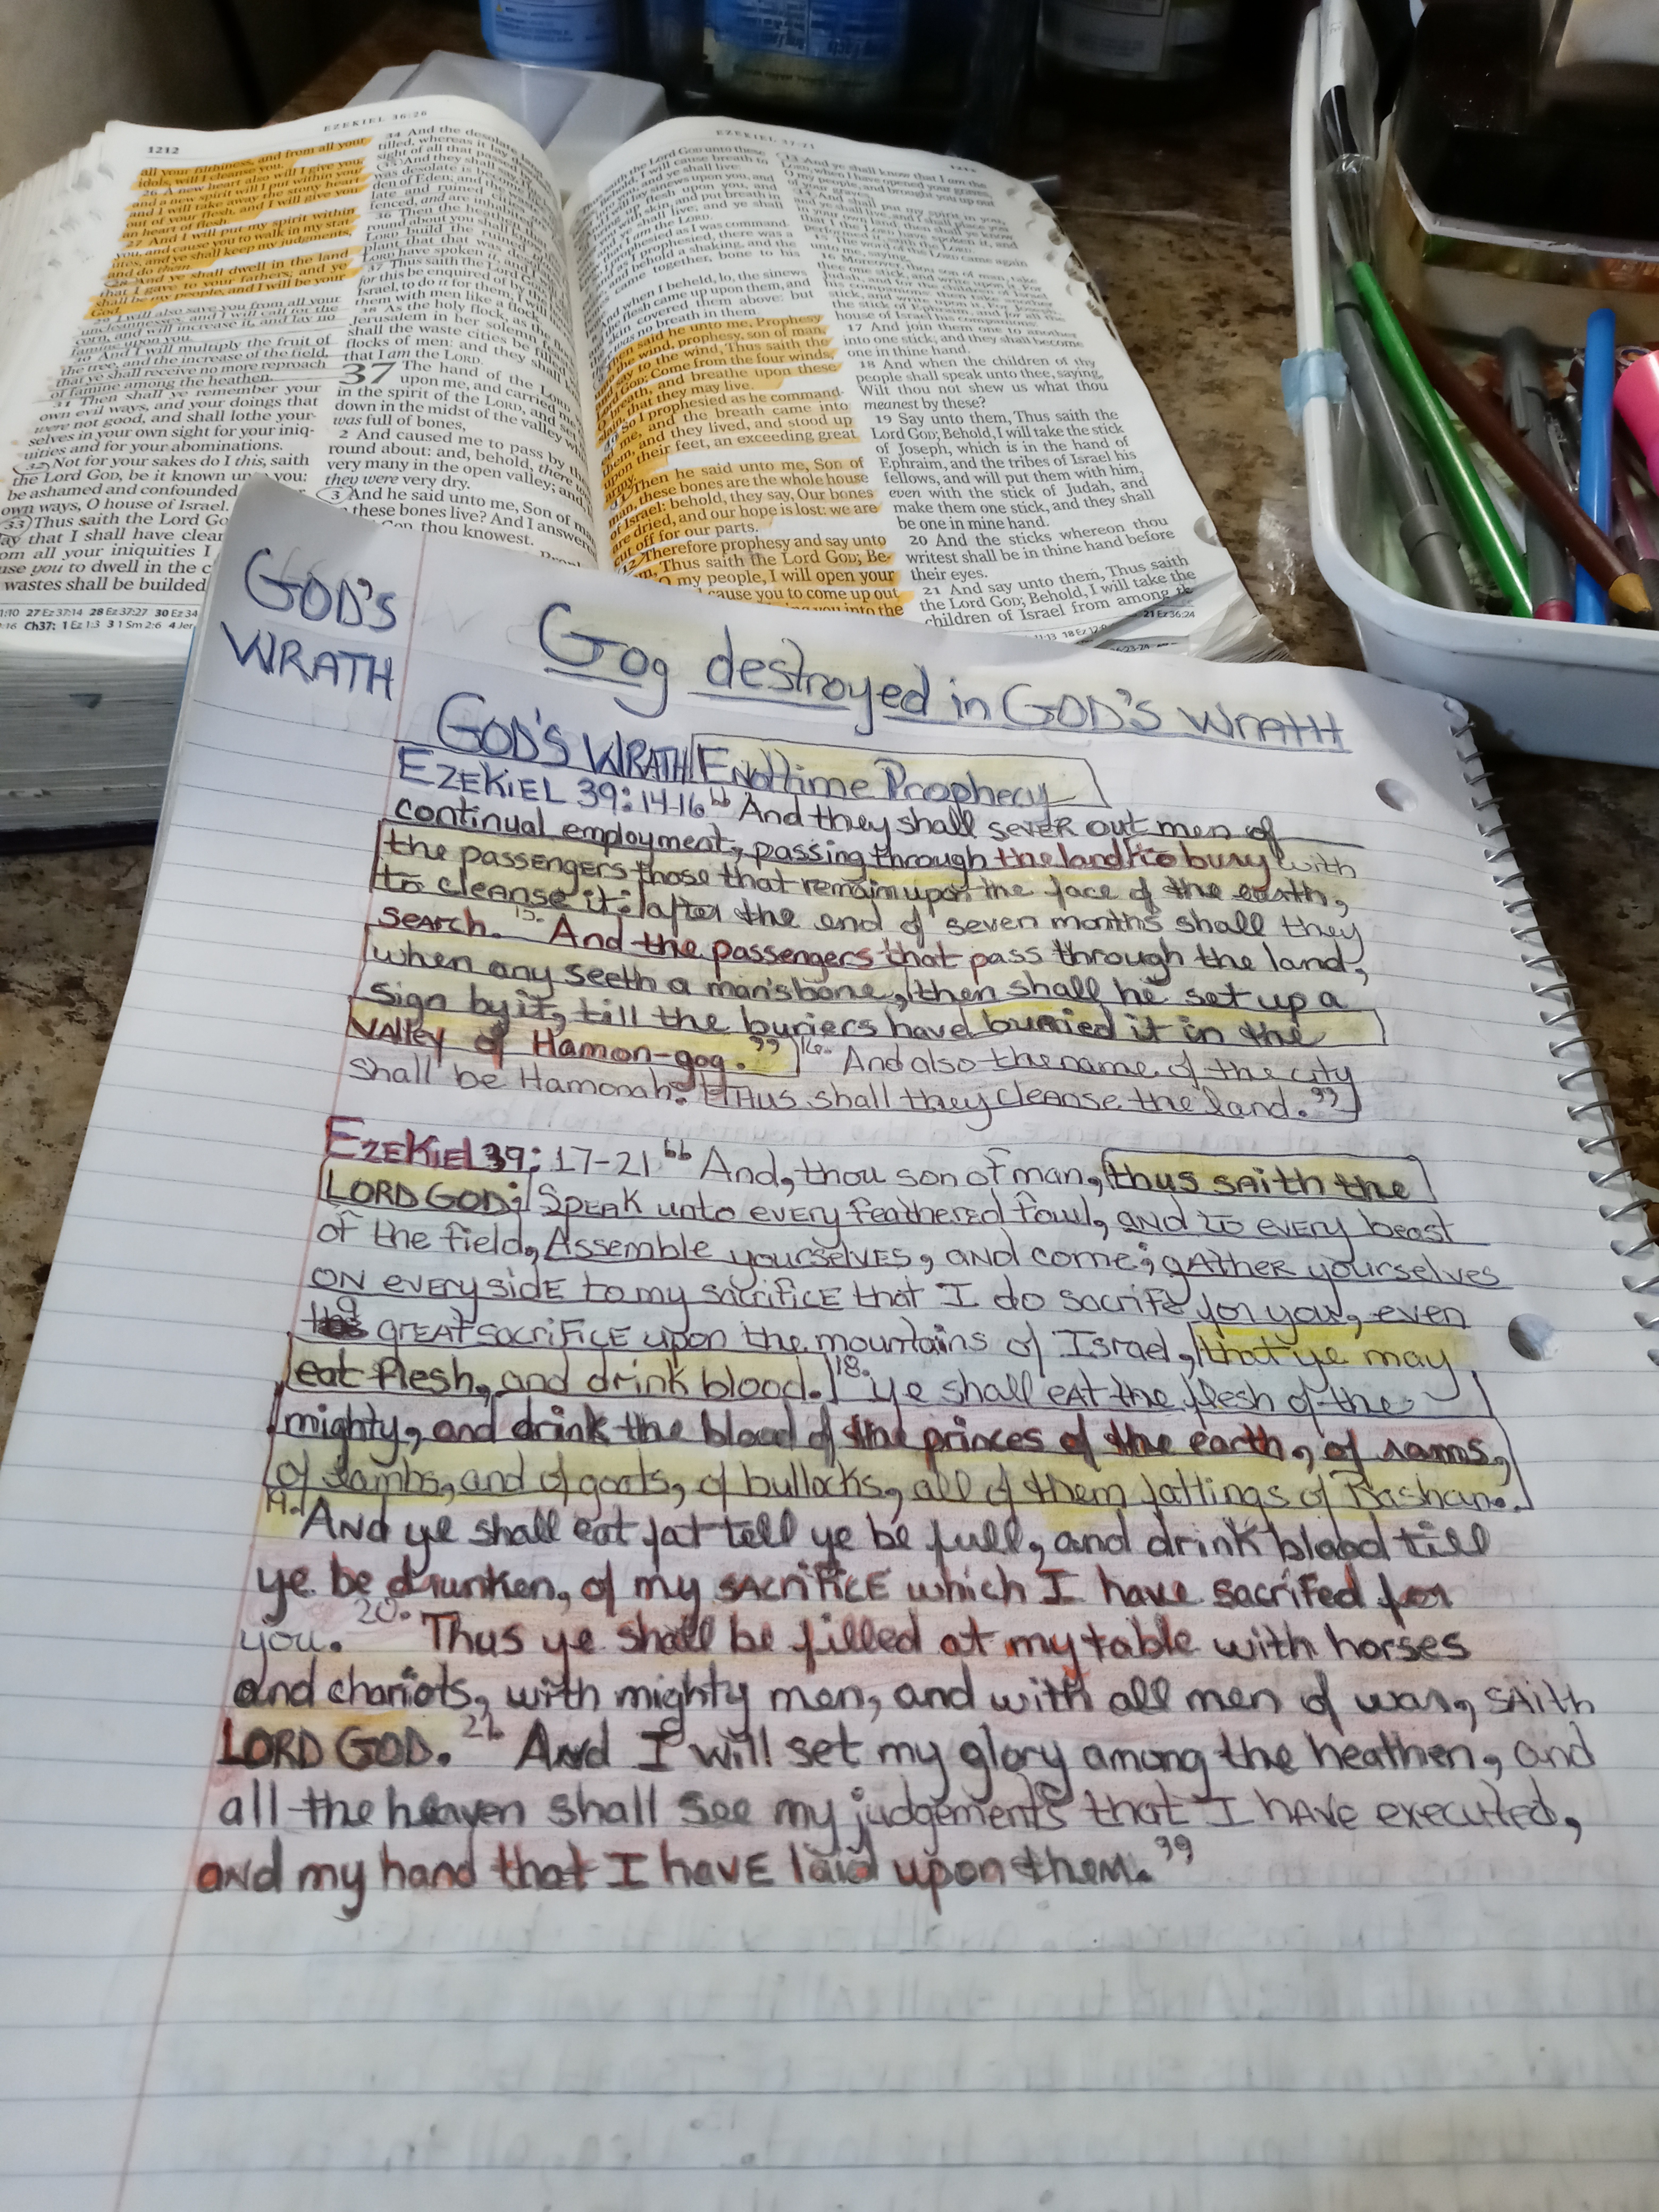 EZEKIEL 36:26
1212
all your filthiness, and from all your
idols, will I cleanse you.
26 A new heart also will I give you,
and a new spirit will I put within you:
and I will take away the stony heart
out of your flesh, and I will give you
an heart of flesh.
27 And I will put my spirit within
you, and cause you to walk in my stat-
utes, and ye shall keep my judgments,
and do them.
28 And ye shall dwell in the land
that I gave to your fathers; and ye
shall be my people, and I will be your
God.
29 I will also save you from all your
uncleannesses: and I will call for the
corn, and will increase it, and lay no
famine upon you.
30 And I will multiply the fruit of
the tree, and the increase of the field,
that ye shall receive no more reproach
of famine among the heathen.
31 Then shall ye remember your
own evil ways, and your doings that
were not good, and shall lothe your-
selves in your own sight for your iniq-
uities and for your abominations.
32 Not for your sakes do I this, saith
the Lord GOD, be it known unto you:
be ashamed and confounded
own ways, O house of Israel.
33 Thus saith the Lord
that I shall have
all your iniquities I
you to dwell in the
wastes shall be builded
27 Ez 37:14 28 Ez 37:27 30 Ez 34
Ch37: 1 Ez 1:3 3 1 Sm 2:6
34 And the desolate land
tilled, whereas it lay
sight of all that passed
35 And they shall say,
was desolate is become
den of Eden; and the
late and ruined
fenced, and are inhabited
36 Then the heathen that
round about you shall
LORD build the
plant that that was
LORD have spoken it, and
37 Thus saith the Lord
for this be enquired of by
Israel, to do it for them; I will
them with men like a flock.
38 As the holy flock, as the
Jerusalem in her solemn
shall the waste cities be filled
flocks of men: and they shall
that I am the LORD.
37 The hand of the LORD
upon me, and carried me
in the spirit of the LORD, and
down in the midst of the valley
was full of bones,
2 And caused me to pass by them
round about: and, behold, there
very many in the open valley; and
they were very dry.
3 And he said unto me, Son of man,
these bones live? And I answered,
thou knowest.
EZEKIEL 37:21
saith the Lord GOD unto these
behold, I will cause breath to
you, and ye shall live:
lay sinews upon you, and
flesh upon you, and
with skin, and put breath in
and ye shall live; and ye shall
I am the LORD.
prophesied as I was command-
as I prophesied, there was a
and behold a shaking, and the
came together, bone to his
when I beheld, lo, the sinews
flesh came up upon them, and
skin covered them above: but
was no breath in them.
said he unto me, Prophesy
the wind, prophesy, son of man,
say to the wind, Thus saith the
GOD; Come from the four winds,
breath, and breathe upon these
that they may live.
So I prophesied as he command-
me, and the breath came into
them, and they lived, and stood up
upon their feet, an exceeding great
army.
11 Then he said unto me, Son of
man, these bones are the whole house
of Israel: behold, they say, Our bones
are dried, and our hope is lost: we are
cut off for our parts.
12 Therefore prophesy and say unto
Thus saith the Lord GOD; Be-
O my people, I will open your
cause you to come up out
you into the
13 And ye shall know that I am the
LORD, when I have opened your graves,
O my people, and brought you up out
of your graves,
14 And shall put my spirit in you,
and ye shall live, and I shall place you
in your own land: then shall ye know
that I the LORD have spoken it, and
performed it, saith the LORD.
15 The word of the LORD came again
unto me, saying,
16 Moreover, thou son of man, take
thee one stick, and write upon it, For
Judah, and for the children of Israel
his companions: then take another
stick, and write upon it, For Joseph,
the stick of Ephraim, and for all the
house of Israel his companions:
17 And join them one to another
into one stick; and they shall become
one in thine hand.
18 And when the children of thy
people shall speak unto thee, saying,
Wilt thou not shew us what thou
meanest by these?
19 Say unto them, Thus saith the
Lord GOD; Behold, I will take the stick
of Joseph, which is in the hand of
Ephraim, and the tribes of Israel his
fellows, and will put them with him,
even with the stick of Judah, and
make them one stick, and they shall
be one in mine hand.
20 And the sticks whereon thou
writest shall be in thine hand before
their eyes.
21 And say unto them, Thus saith
the Lord GOD; Behold, I will take the
children of Israel from among the
21 Ez 36:24
GOD'S
WRATH
Gog destroyed in GOD'S WRATH
GOD'S WRATH Endtime Prophecy
EZEKIEL 39:14-16 "And they shall sever out men of
continual employment, passing through the land to bury with
the passengers those that remain upon the face of the earth,
to cleanse it: after the end of seven months shall they
search. 15. And the passengers that pass through the land,
when any seeth a man's bone, then shall he set up a
sign by it, till the buriers have burried it in the
Valley of Hamon-gog." 16. And also the name of the city
shall be Hamonah. Thus shall they cleanse the land."
EZEKIEL 39: 17-21 "And, thou son of man, thus saith the
LORD GOD; Speak unto every feathered fowl, and to every beast
of the field, Assemble yourselves, and come; gather yourselves
on every side to my sacrifice that I do sacrife for you, even
a great sacrifice upon the mountains of Israel, that ye may
eat flesh, and drink blood. 18. Ye shall eat the flesh of the
mighty, and drink the blood of the princes of the earth, of rams,
of lambs, and of goats, of bullocks, all of them fattings of Bashan.
19. And ye shall eat fat tell ye be full, and drink blood till
ye be drunken, of my sacrifice which I have sacrifed for
you. 20. Thus ye shall be filled at my table with horses
and chariots, with mighty men, and with all men of war, saith
LORD GOD. 21. And I will set my glory among the heathen, and
all the heaven shall see my judgements that I have executed,
and my hand that I have laid upon them."